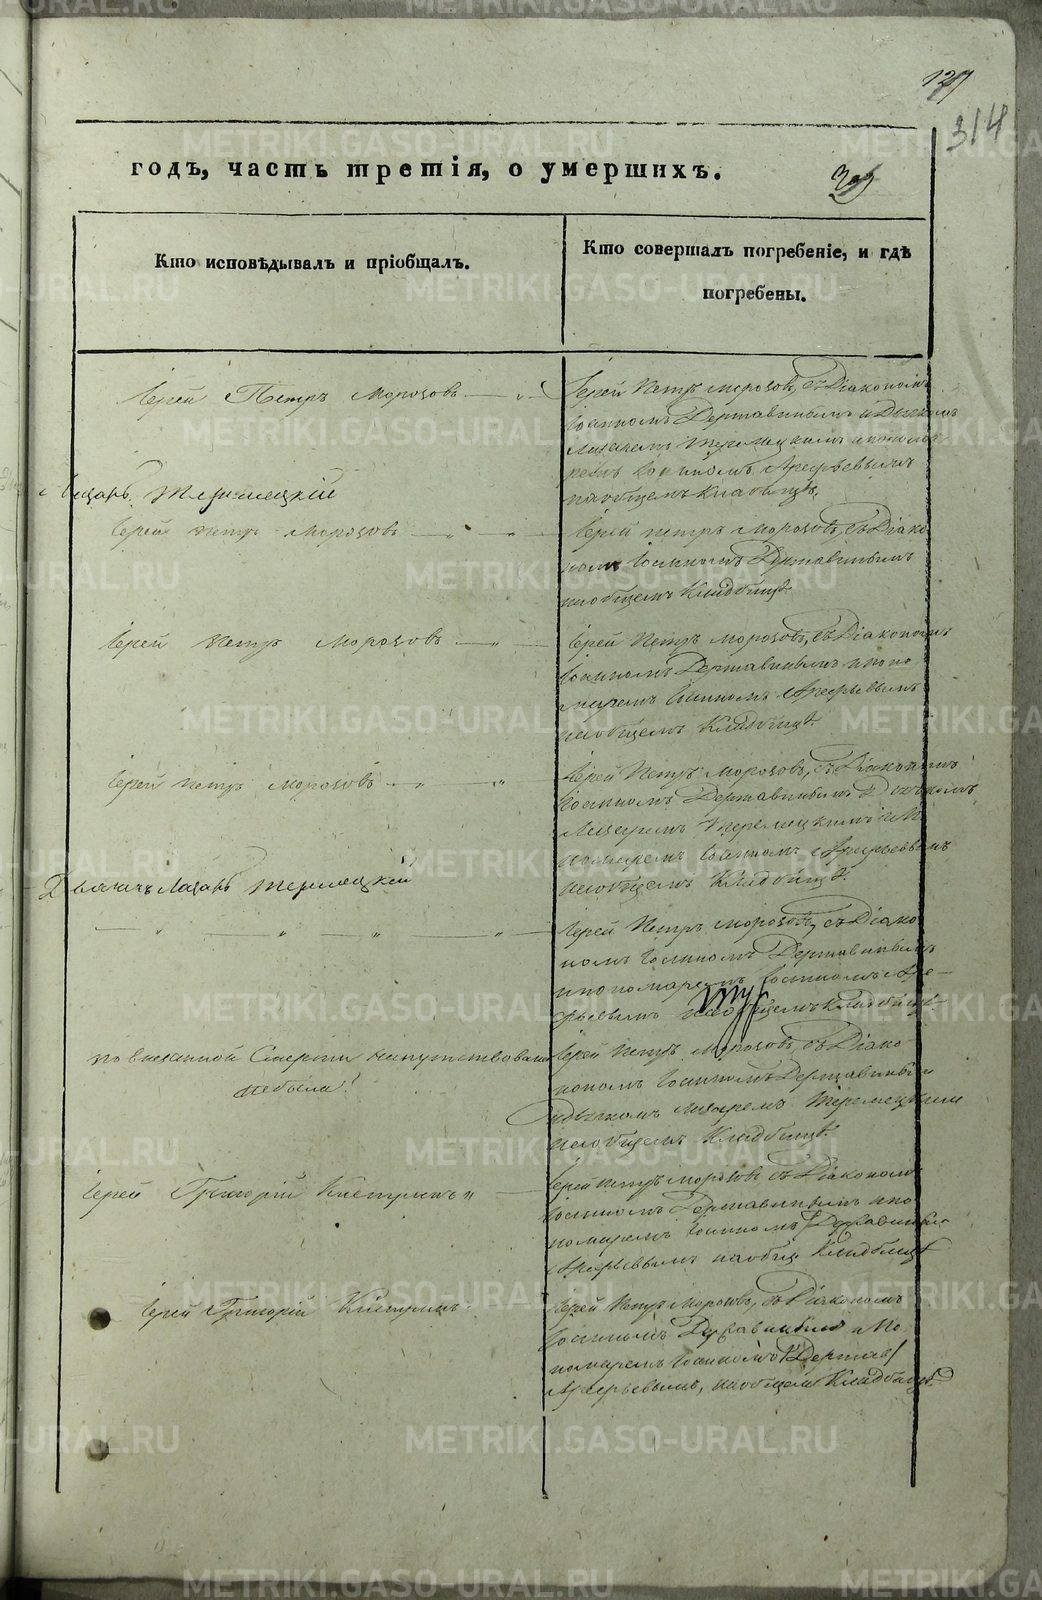 127
314
годъ, часть третія, о умершихъ.
Кто исповѣдывалъ и пріобщалъ.
Кто совершалъ погребеніе, и гдѣ
погребены.
Іерей Петръ Морозовъ
Іерей Петръ Морозовъ, съ Діакономъ
Іоанномъ Державинымъ и Дьячкомъ
Лазаремъ Теремецкимъ и
Іоанномъ Арефьевымъ
на общемъ кладбищѣ.
Лазарь Теремецкій
Іерей Петръ Морозовъ
Іерей Петръ Морозовъ, съ Діако
номъ Іоанномъ Державинымъ
на общемъ Кладбищѣ.
Іерей Петръ Морозовъ
Іерей Петръ Морозовъ, съ Діакономъ
Іоанномъ Державинымъ и поно
маремъ Іоанномъ Арефьевымъ
на общемъ Кладбищѣ.
Іерей Петръ Морозовъ
Іерей Петръ Морозовъ, съ Діакономъ
Іоанномъ Державинымъ
Лазаремъ Теремецкимъ и По
номаремъ Іоанномъ Арефьевымъ
на общемъ Кладбищѣ.
Дьячекъ Лазарь Теремецкій
Іерей Петръ Морозовъ, съ Діако
номъ Іоанномъ Державинымъ
и пономаремъ Іоанномъ Аре-
фьевымъ на общемъ Кладбищѣ
по внезапной Смерти напутствована
небыла!
Іерей Петръ Морозовъ, съ Діако-
номъ Іоанномъ Державинымъ
и дьячкомъ Лазаремъ Теремецкимъ
на общемъ Кладбищѣ.
Іерей Григорій
Іерей Петръ Морозовъ съ Діакономъ
Іоанномъ Державинымъ и по
номаремъ Іоанномъ
Арефьевымъ на общ Кладбищѣ
Іерей Григорій
Іерей Петръ Морозовъ, съ Діакономъ
Іоанномъ Державинымъ и По
номаремъ Іоанномъ
Арефьевымъ, на общемъ Кладбищѣ.
METRIKI.GASO-URAL.RU